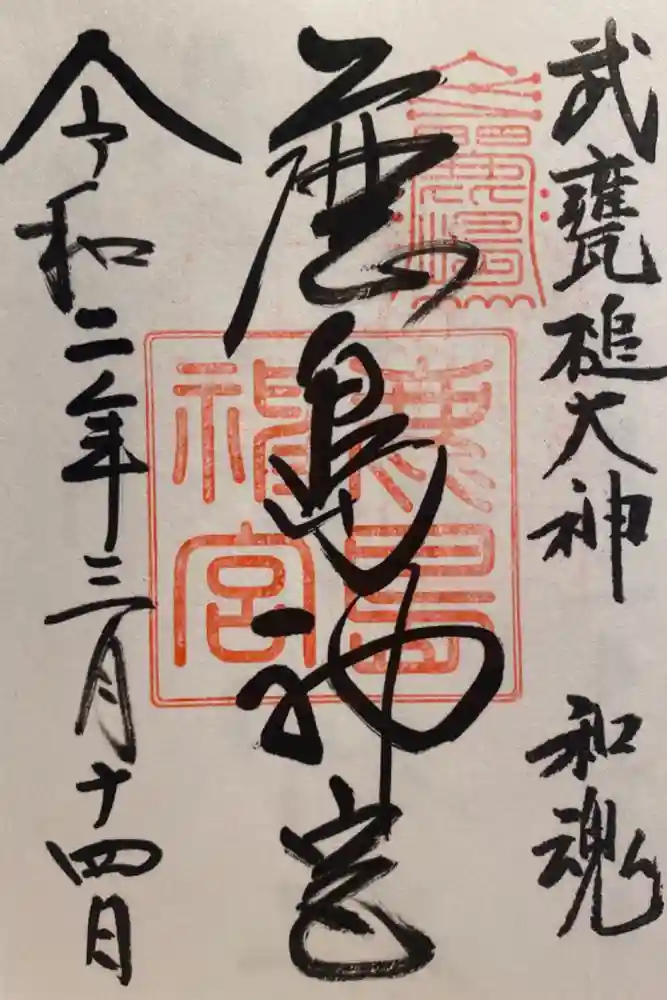 武甕槌大神 和魂
鹿島神宮
鹿嶋
鹿島
神宮
令和二年三月十四日